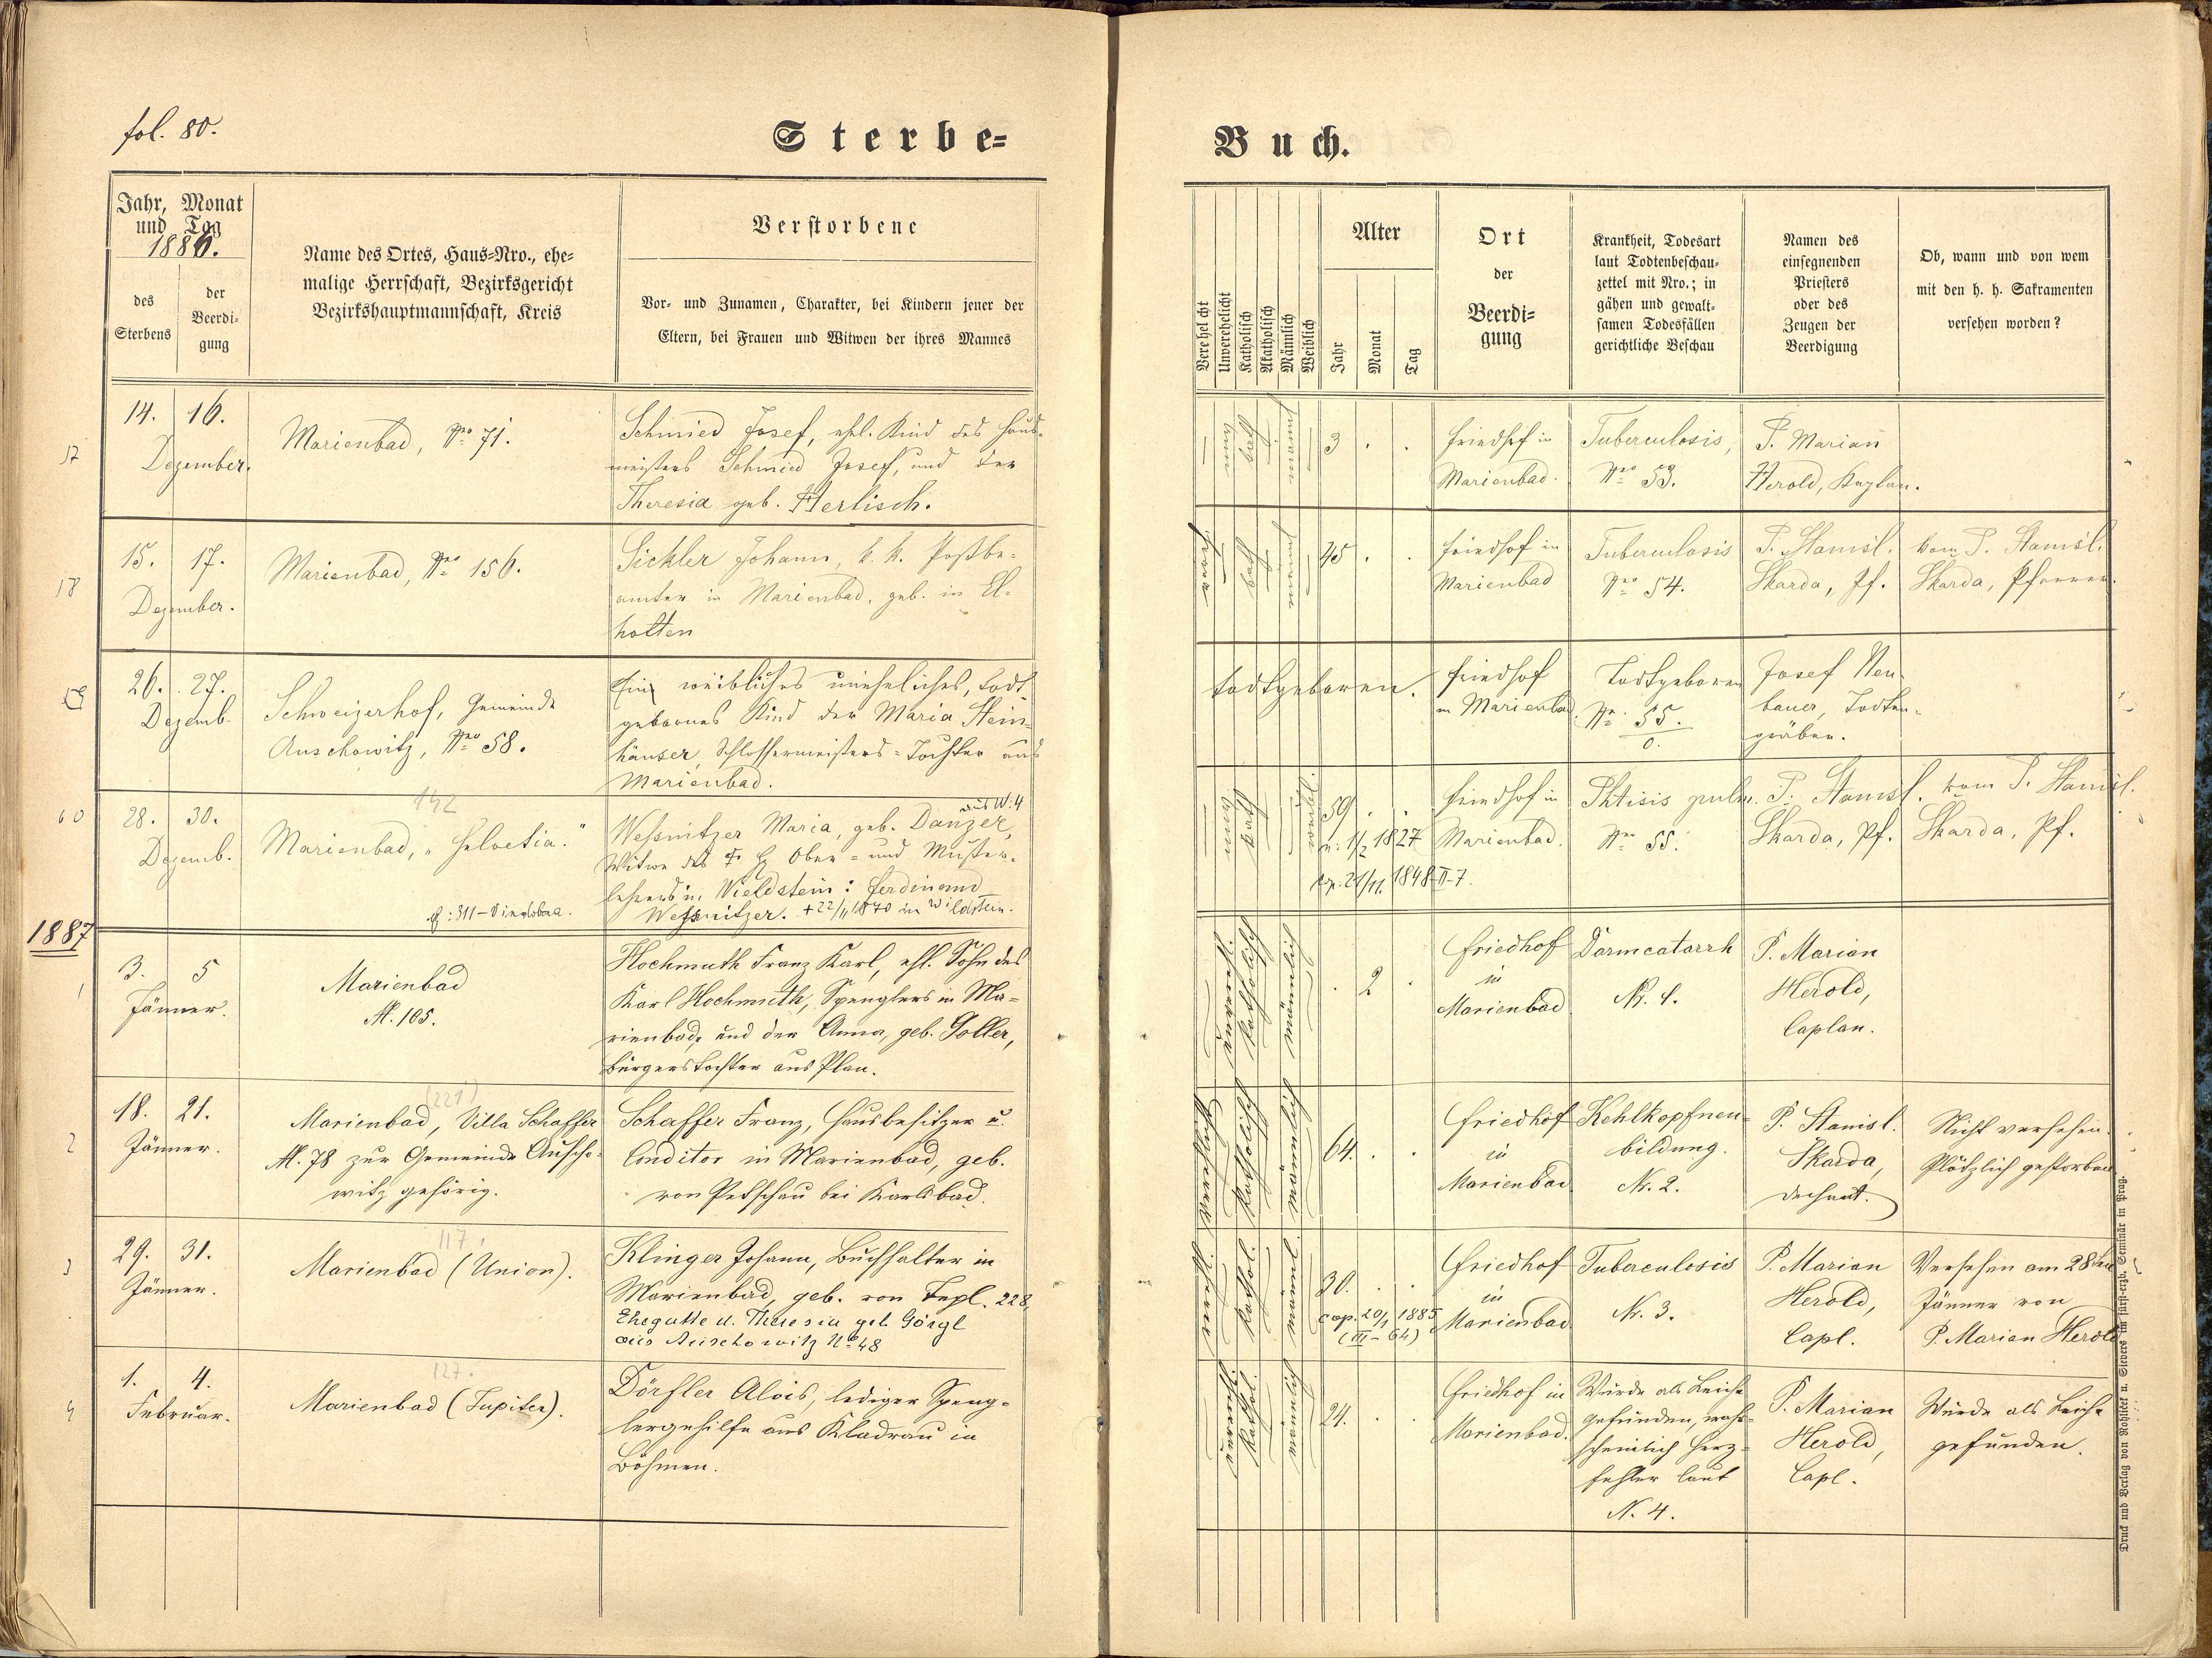 fol. 80.
Sterbe-
Buch.
Jahr, Monat
und Tag
1886.
des
Sterbens
der
Beerdi-
gung
Name des Ortes, Haus-Nro., ehe-
malige Herrschaft, Bezirksgericht
Bezirkshauptmannschaft, Kreis
Verstorbene
Vor- und Zunamen, Charakter, bei Kindern jener der
Eltern, bei Frauen und Witwen der ihres Mannes
Verehelicht
Unverehelicht
Katholisch
Akatholisch
Männlich
Weiblich
Alter
Jahr
Monat
Tag
Ort
der
Beerdi-
gung
Krankheit, Todesart
laut Todtenbeschau-
zettel mit Nro.; in
gähen und gewalt-
samen Todesfällen
gerichtliche Beschau
Namen des
einsegnenden
Priesters
oder des
Zeugen der
Beerdigung
Ob, wann und von wem
mit den h. h. Sakramenten
versehen worden?
57
14. 16.
Dezember.
Marienbad, Nro 71.
Schmied Josef, ehl. Kind des Haus-
meisters Schmied Josef, und der
Theresia geb. Herlisch.
kath
3 . .
Friedhof in
Marienbad.
Tuberculosis,
Nro 53.
P. Marian
Herold, Kaplan.
58
15. 17.
Dezember.
Marienbad, Nro 156.
Sickler Johann, k. k. Postbe-
amter in Marienbad, geb. in El-
hotten
kath
45 . .
Friedhof in
Marienbad
Tuberculosis
Nro 54.
P. Stanisl.
Skarda, Pf.
Vom P. Stanisl.
Skarda, Pfarrer.
59
26. 27.
Dezemb.
Schweizerhof, Gemeinde
Auschowitz, Nro 58.
Ein weibliches uneheliches, todt-
gebornes Kind der Maria Stein-
häuser, Schlossermeisters-Tochter aus
Marienbad.
todtgeboren.
Friedhof
in Marienbad.
Todtgeboren
Nr. 55.
0.
Josef Neu-
bauer, Todten-
gräber.
60
28. 30.
Dezemb.
142
Marienbad, "Helvetia."
aus W: 4
Wessnitzer Maria, geb. Danzer,
Witwe des Ober- und Muster-
lehrers in Wieldstein: Ferdinand
Wessnitzer. +22/11 1870 in Wildstein.
kath
59 . .
n: 1/2 1827
cop: 21/11. 1848-II-7.
Friedhof in
Marienbad.
Phtisis pulm.
Nro 55.
P. Stanisl.
Skarda, Pf.
Vom P. Stanisl.
Skarda, Pf.
1887
1
3. 5
Jänner.
Marienbad
N. 105.
Hochmuth Franz Karl, ehl. Sohn des
Karl Hochmuth, Spenglers in Ma-
rienbad, und der Anna, geb. Goller,
Bürgerstochter aus Plan.
unvereh.
katholisch
männlich
. 2 .
Friedhof
in
Marienbad
Darmcatarrh
N. 1.
P. Marian
Herold,
Caplan.
2
18. 21.
Jänner.
(221)
Marienbad, Villa Schaffer
N. 78 zur Gemeinde Auscho-
witz gehörig.
Schaffer Franz, Hausbesitzer u.
Conditor in Marienbad, geb.
von Petschau bei Karlsbad.
katholisch
männlich
64. . .
Friedhof
in
Marienbad
Kehlkopfneu-
bildung.
N. 2.
P. Stanisl.
Skarda,
Dechant.
Nicht versehen.
Plötzlich gestorben.
3
29. 31.
Jänner.
117.
Marienbad (Union).
Klinger Johann, Buchhalter in
Marienbad, geb. von Tepl. 228,
Ehegatte d. Theresia geb. Görgl
aus Auschowitz No 48
kathol.
männl.
30. . .
cop. 20/1 1885
(III-64)
Friedhof
in
Marienbad
Tuberculosis
N. 3.
P. Marian
Herold,
Capl.
Versehen am 28ten
Jänner von
P. Marian Herold
4
1. 4.
Februar.
127.
Marienbad (Jupiter).
Dörfler Alois, lediger Speng-
lergehilfe aus Kladrau in
Böhmen.
kathol.
männlich
24. . .
Friedhof in
Marienbad.
Wurde als Leiche
gefunden, wahr-
scheinlich Herz-
fehler laut
N. 4.
P. Marian
Herold,
Capl.
Wurde als Leiche
gefunden.
Druck und Verlag von Rohliček u. Sievers im fürst-erzb. Seminär in Prag.